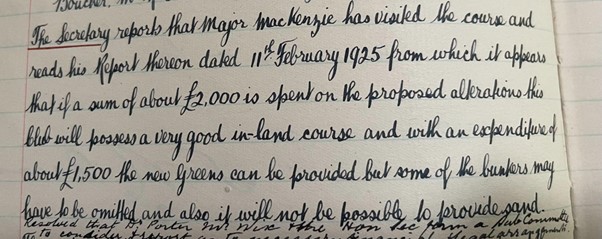 Boucher, M
The Secretary reports that Major MacKenzie has visited the course and
reads his Report thereon dated 11th February 1925 from which it appears
that if a sum of about £2,000 is spent on the proposed alterations this
Club will possess a very good in-land course and with an expenditure of
about £1,500 the new Greens can be provided but some of the bunkers may
have to be omitted and also it will not be possible to provide sand.
Resolved that Dr Porter Mr Wix & the Hon Sec form a Sub Committee
to consider & report as to necessary financial & legal arrangements.